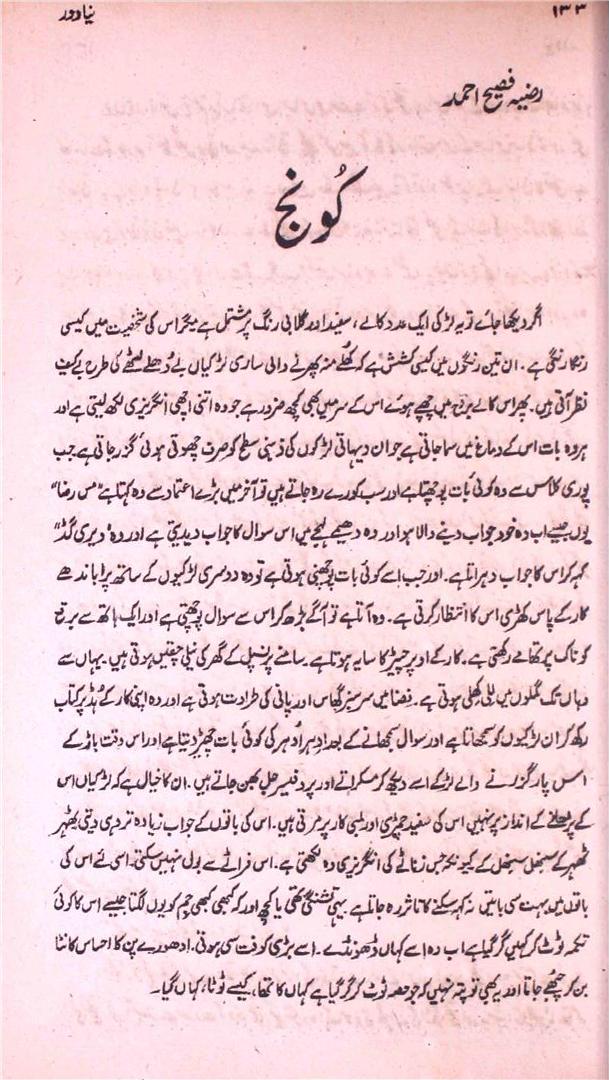 ۱۳۳
نیا دور
رضیہ فصیح احمد
کُونج
اگر دیکھا جائے تو یہ لڑکی ایک عدد کالے، سفید اور گلابی رنگ پر مشتمل ہے مگر اس کی شخصیت میں کیسی
رنگا رنگی ہے۔ ان تین رنگوں میں کیسی کشش ہے کہ کھلے منہ پھرنے والی ساری لڑکیاں بے دُھلے لٹھے کی طرح بے کیف
نظر آتی ہیں۔ پھر اس کالے برقع میں چھپے ہوئے اس کے سر میں بھی کچھ ضرور ہے جو وہ اتنی اچھی انگریزی لکھ لیتی ہے اور
ہر وہ بات اس کے دماغ میں سما جاتی ہے جو ان دیہاتی لڑکوں کی ذہنی سطح کو صرف چھوتی ہوئی گزر جاتی ہے جب
پوری کلاس سے وہ کوئی بات پوچھتا ہے اور سب کورے رہ جاتے ہیں تو آخر میں بڑے اعتماد سے وہ کہتا ہے "مس رضا"
یوں جیسے اب وہ خود جواب دینے والا ہو اور وہ دھیمے لہجے میں اس سوال کا جواب دیدیتی ہے اور وہ "ویری گڈ"
کہہ کر اس کا جواب دہراتا ہے۔ اور جب اسے کوئی بات پوچھنی ہوتی ہے تو وہ دوسری لڑکیوں کے ساتھ پرا باندھے
کار کے پاس کھڑی اس کا انتظار کرتی ہے۔ وہ آتا ہے تو آگے بڑھ کر اس سے سوال پوچھتی ہے اور ایک ہاتھ سے برقع
کو ناک پر تھامے رکھتی ہے۔ کار کے اوپر چھپر کا سایہ ہوتا ہے۔ سامنے پرنسپل کے گھر کی نیلی چقیں ہوتی ہیں۔ یہاں سے
وہاں تک گملوں میں للی کھلی ہوتی ہے۔ فضا میں سرسبز گھاس اور پانی کی طراوت ہوتی ہے اور وہ اپنی کار کے ہڈ پر کتاب
رکھ کر ان لڑکیوں کو سمجھاتا ہے اور سوال سمجھانے کے بعد اِدہر اُدہر کی کوئی بات چھیڑ دیتا ہے اور اس وقت باڑ کے
اس پار گزرنے والے لڑکے اسے دیکھ کر مسکراتے اور پروفیسر جل بھن جاتے ہیں۔ ان کا خیال ہے کہ لڑکیاں اس
کے پڑھانے کے انداز پر نہیں اس کی سفید چمڑی اور لمبی کار پر مرتی ہیں۔ اس کی باتوں کے جواب زیادہ تر وہی دیتی ٹھہر
ٹھہر کے سنبھل سنبھل کے کیونکہ جس زناٹے کی انگریزی وہ لکھتی ہے۔ اس فراٹے سے بول نہیں سکتی۔ اسی لئے اس کی
باتوں میں بہت سی باتیں نہ کہہ سکنے کا تاثر رہ جاتا ہے یہی تشنگی تھی یا کچھ اور کہ کبھی کبھی جم کو یوں لگتا جیسے اس کا کوئی
تکمہ ٹوٹ کر کہیں گر گیا ہے اب وہ اسے کہاں ڈھونڈے۔ اسے بڑی کوفت سی ہوتی۔ ادھورے پن کا احساس کانٹا
بن کر چُبھے جاتا اور یہ بھی تو پتہ نہیں کہ جو حصہ ٹوٹ کر گر گیا ہے کہاں کا تھا، کیسے ٹوٹا، کہاں گیا۔